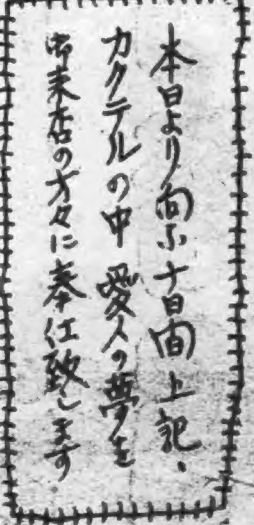 本日より向ふ十日間上記、
カクテルの中愛人の夢を
御来店の方々に奉仕致します